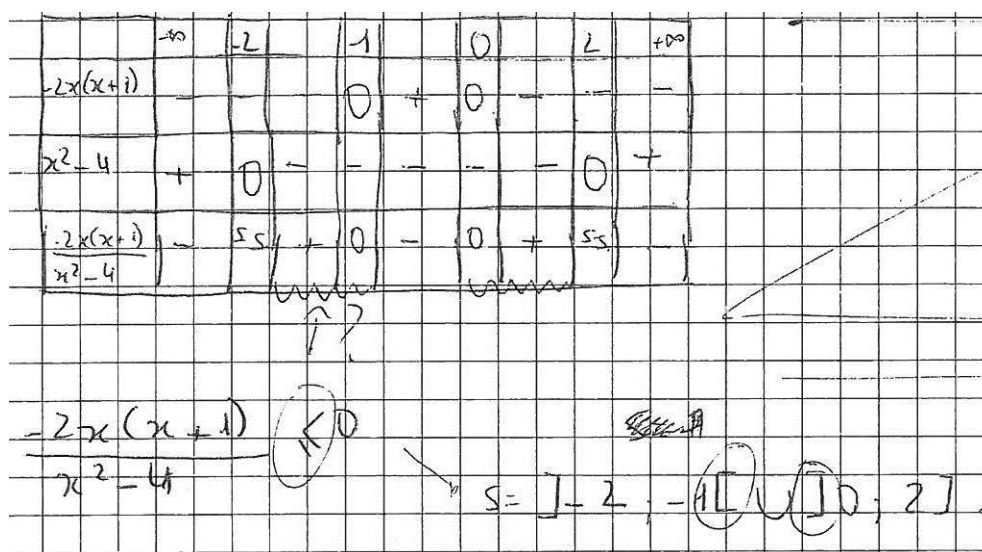 -∞ -2 -1 0 2 +∞
-2x(x+1) - 0 + 0 - - -
x²-4 + 0 - - - - - 0 +
-2x(x+1) - s.s + 0 - 0 + s.s -
x²-4
↑ ?
-2x(x+1) ≤ 0
x²-4
S = ]-2 ; -1[ ∪ ]0 ; 2]